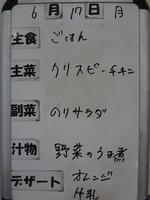 6月17日月
主食 ごはん
主菜 クリスピーチキン
副菜 のりサラダ
汁物 野菜のうま煮
デザート オレンジ
牛乳